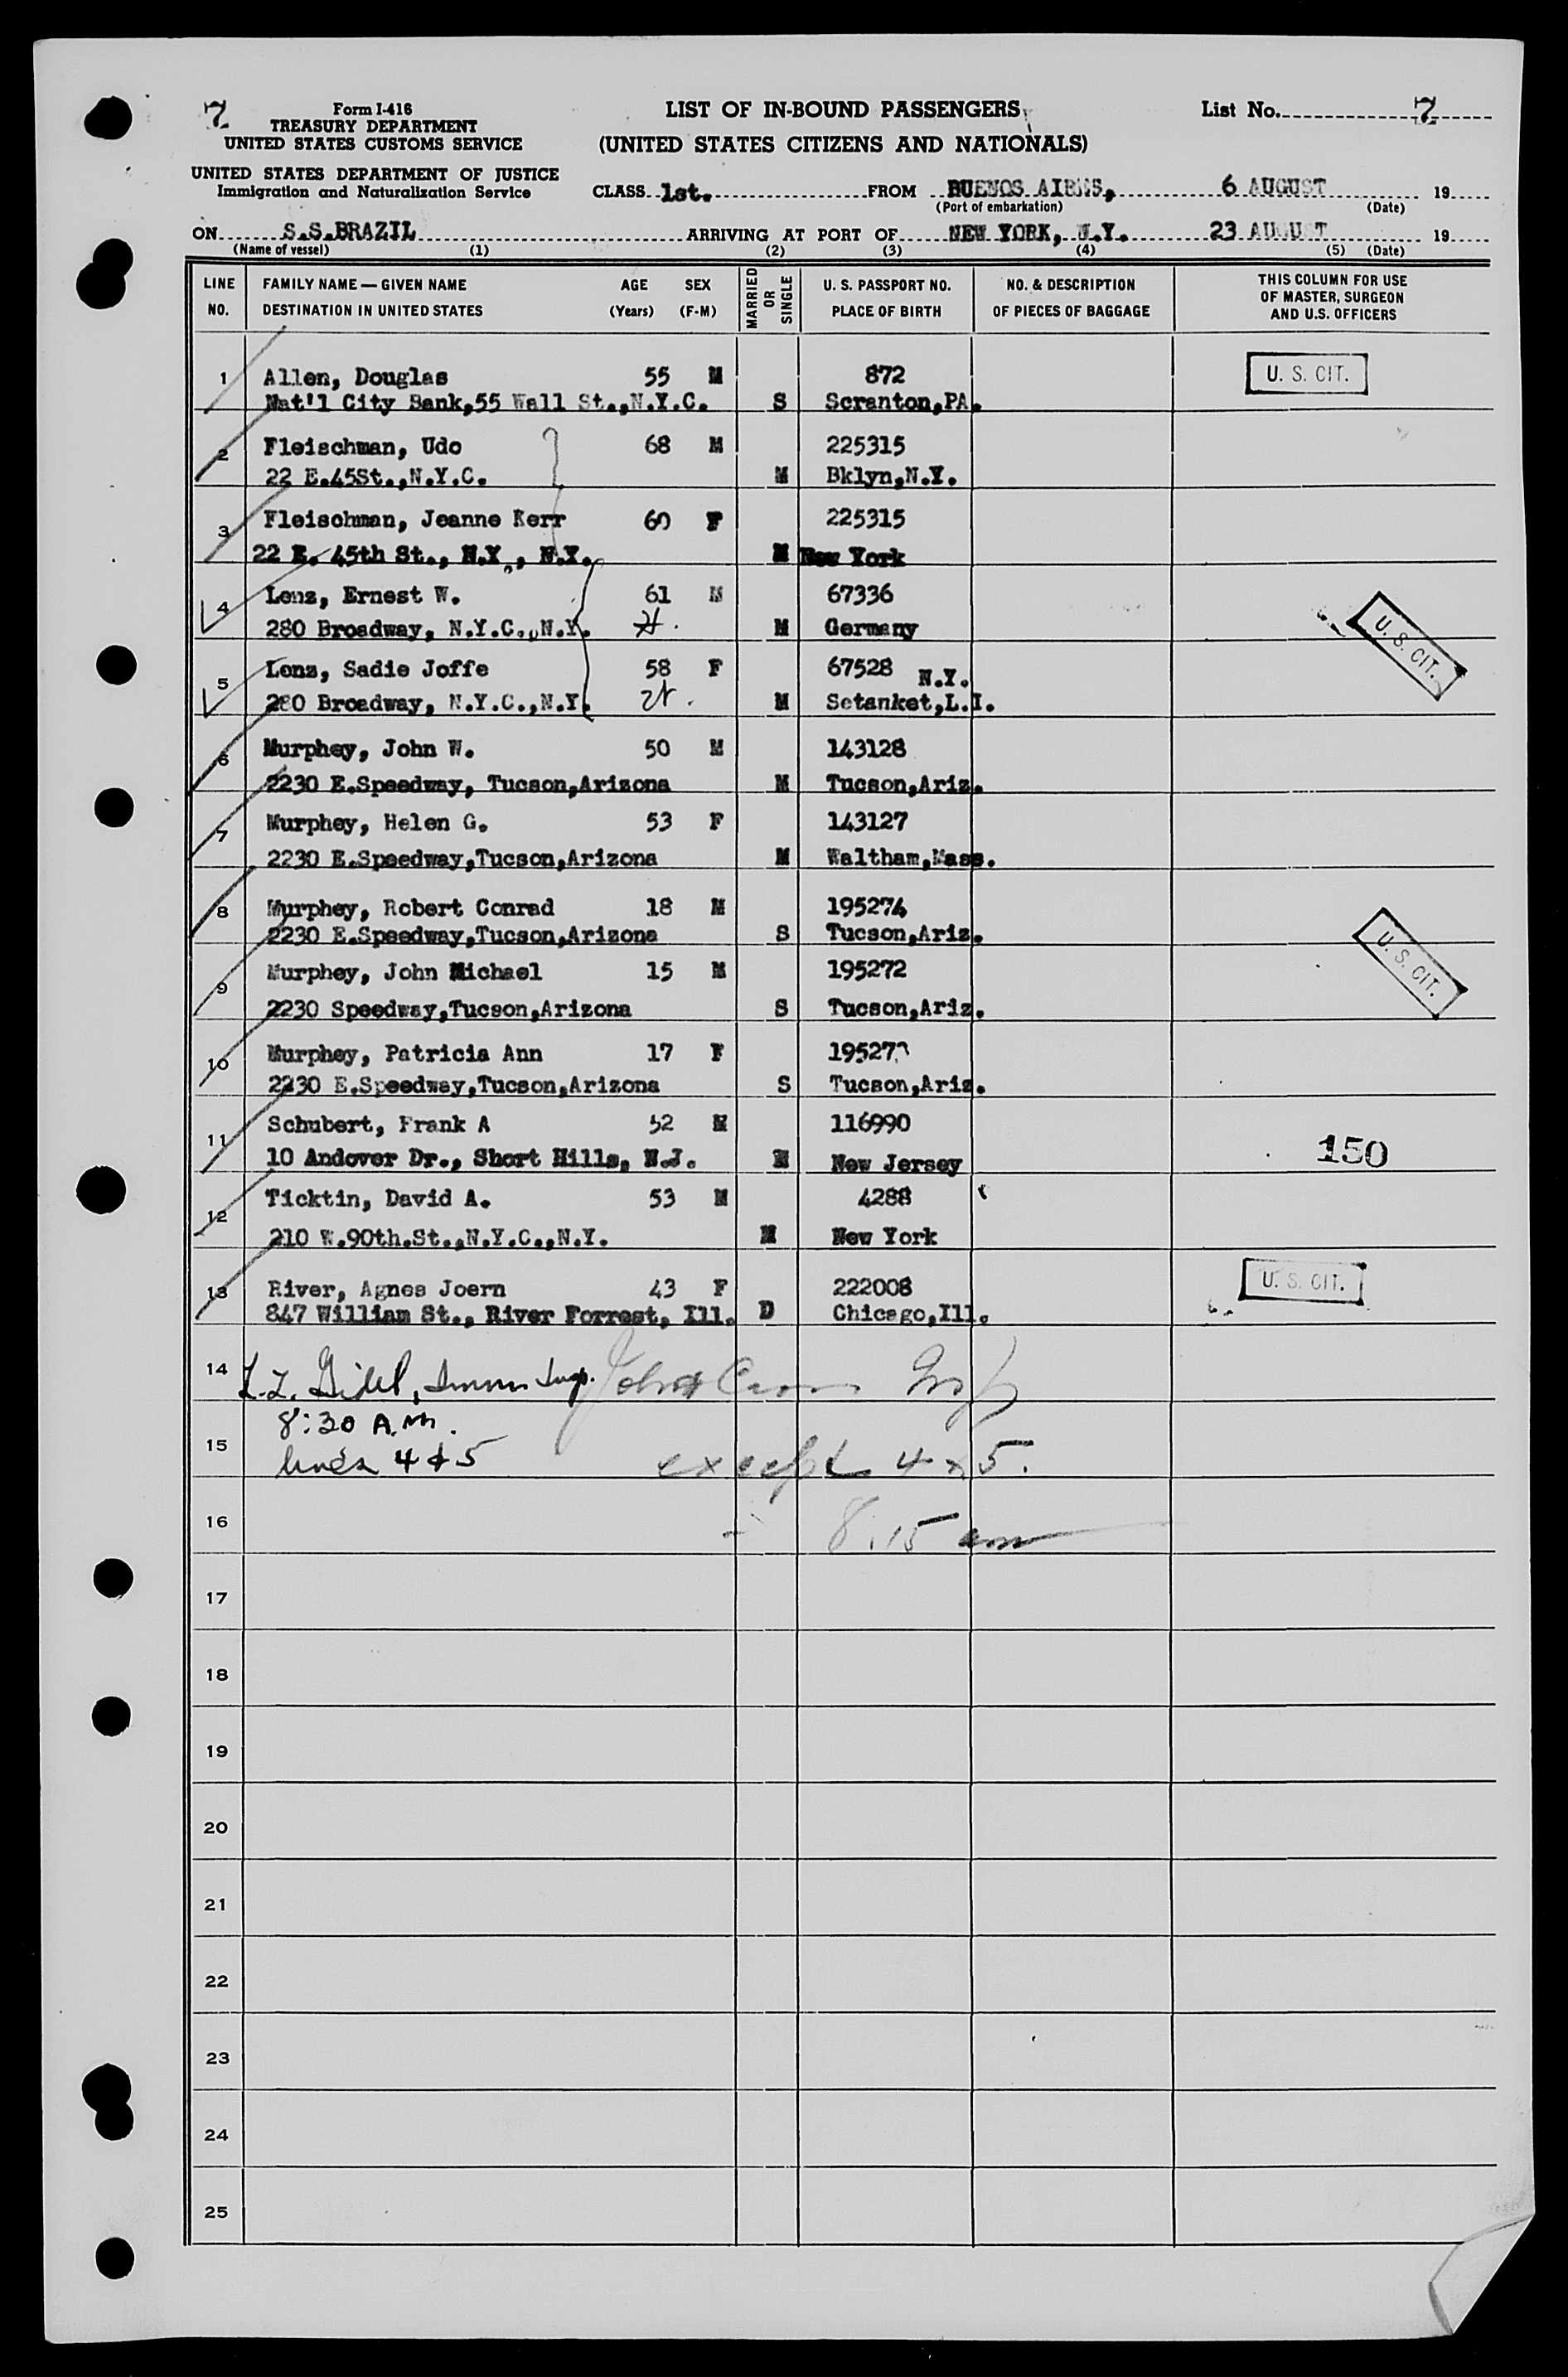 7
Form I-416
TREASURY DEPARTMENT
UNITED STATES CUSTOMS SERVICE
UNITED STATES DEPARTMENT OF JUSTICE
Immigration and Naturalization Service
LIST OF IN-BOUND PASSENGERS
(UNITED STATES CITIZENS AND NATIONALS)
List No. 7
CLASS 1st. FROM BUENOS AIRES, 6 AUGUST 19
(Port of embarkation) (Date)
ON S.S.BRAZIL ARRIVING AT PORT OF NEW YORK, N.Y. 23 AUGUST 19
(Name of vessel) (1) (2) (3) (4) (5) (Date)
LINE NO. FAMILY NAME — GIVEN NAME DESTINATION IN UNITED STATES AGE (Years) SEX (F-M) MARRIED OR SINGLE U. S. PASSPORT NO. PLACE OF BIRTH NO. & DESCRIPTION OF PIECES OF BAGGAGE THIS COLUMN FOR USE OF MASTER, SURGEON AND U.S. OFFICERS
1 Allen, Douglas 55 M 872 U. S. CIT.
Nat'l City Bank,55 Wall St.,N.Y.C. S Scranton,PA.
2 Fleischman, Udo 68 M 225315
22 E.45St.,N.Y.C. M Bklyn,N.Y.
3 Fleischman, Jeanne Kerr 60 F 225315
22 E. 45th St., N.Y., N.Y. M New York
4 Lenz, Ernest W. 61 M 67336 U. S. CIT.
280 Broadway, N.Y.C.,N.Y. M Germany
5 Lenz, Sadie Joffe 58 F 67528 N.Y.
280 Broadway, N.Y.C.,N.Y. M Setanket,L.I.
6 Murphey, John W. 50 M 143128
2230 E.Speedway, Tucson,Arizona M Tucson,Ariz.
7 Murphey, Helen G. 53 F 143127
2230 E.Speedway,Tucson,Arizona M Waltham,Mass.
8 Murphey, Robert Conrad 18 M 195274
2230 E.Speedway,Tucson,Arizona S Tucson,Ariz.
9 Murphey, John Michael 15 M 195272 U. S. CIT.
2230 Speedway,Tucson,Arizona S Tucson,Ariz.
10 Murphey, Patricia Ann 17 F 195273
2230 E.Speedway,Tucson,Arizona S Tucson,Ariz.
11 Schubert, Frank A 52 M 116990
10 Andover Dr., Short Hills, N.J. M New Jersey 150
12 Ticktin, David A. 53 M 4288
210 W.90th.St.,N.Y.C.,N.Y. M New York
13 River, Agnes Joern 43 F 222008 U. S. CIT.
847 William St., River Forrest, Ill. D Chicago,Ill.
14 John
8:30 A.M.
15 lines 4 & 5 except 4 & 5.
16 8:15 am
17
18
19
20
21
22
23
24
25